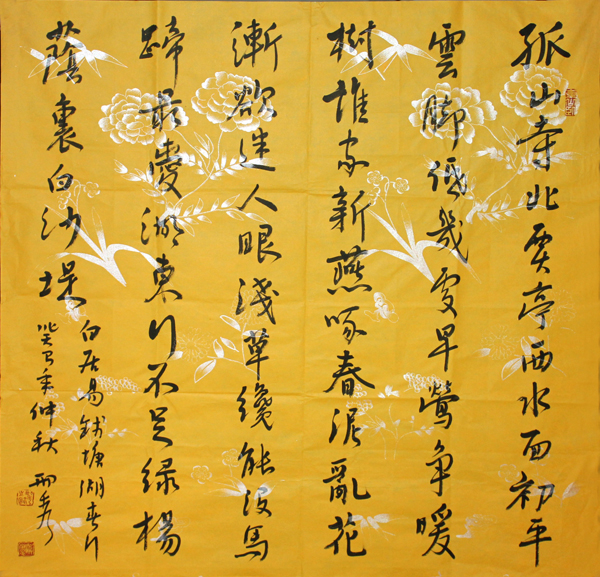 孤山寺北賈亭西水面初平
雲腳低幾處早鶯爭暖
樹誰家新燕啄春泥亂花
漸欲迷人眼淺草纔能沒馬
蹄最愛湖東行不足綠楊
蔭裏白沙堤
白居易錢塘湖春行
癸巳年仲秋